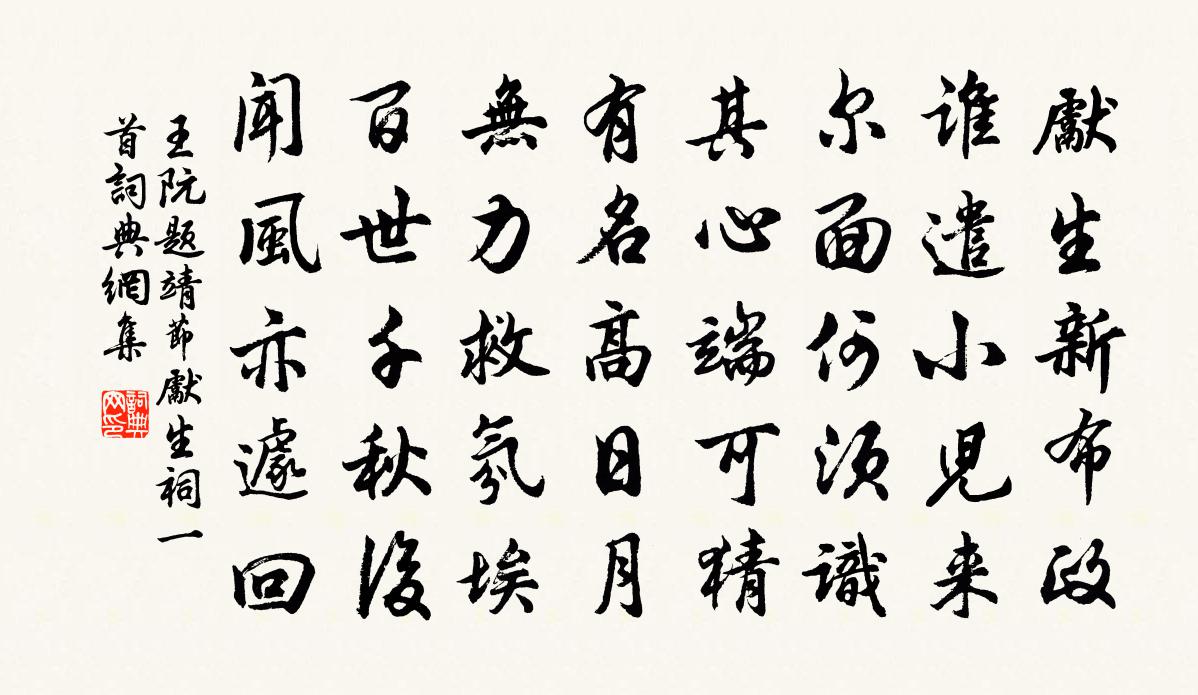 獻生新布政
谁遣小児来
尔面何须識
其心端可猜
有名高日月
無力救氛埃
百世千秋後
闻風亦遽回
王阮题靖節獻生祠一
首詞典網集
詞典网印